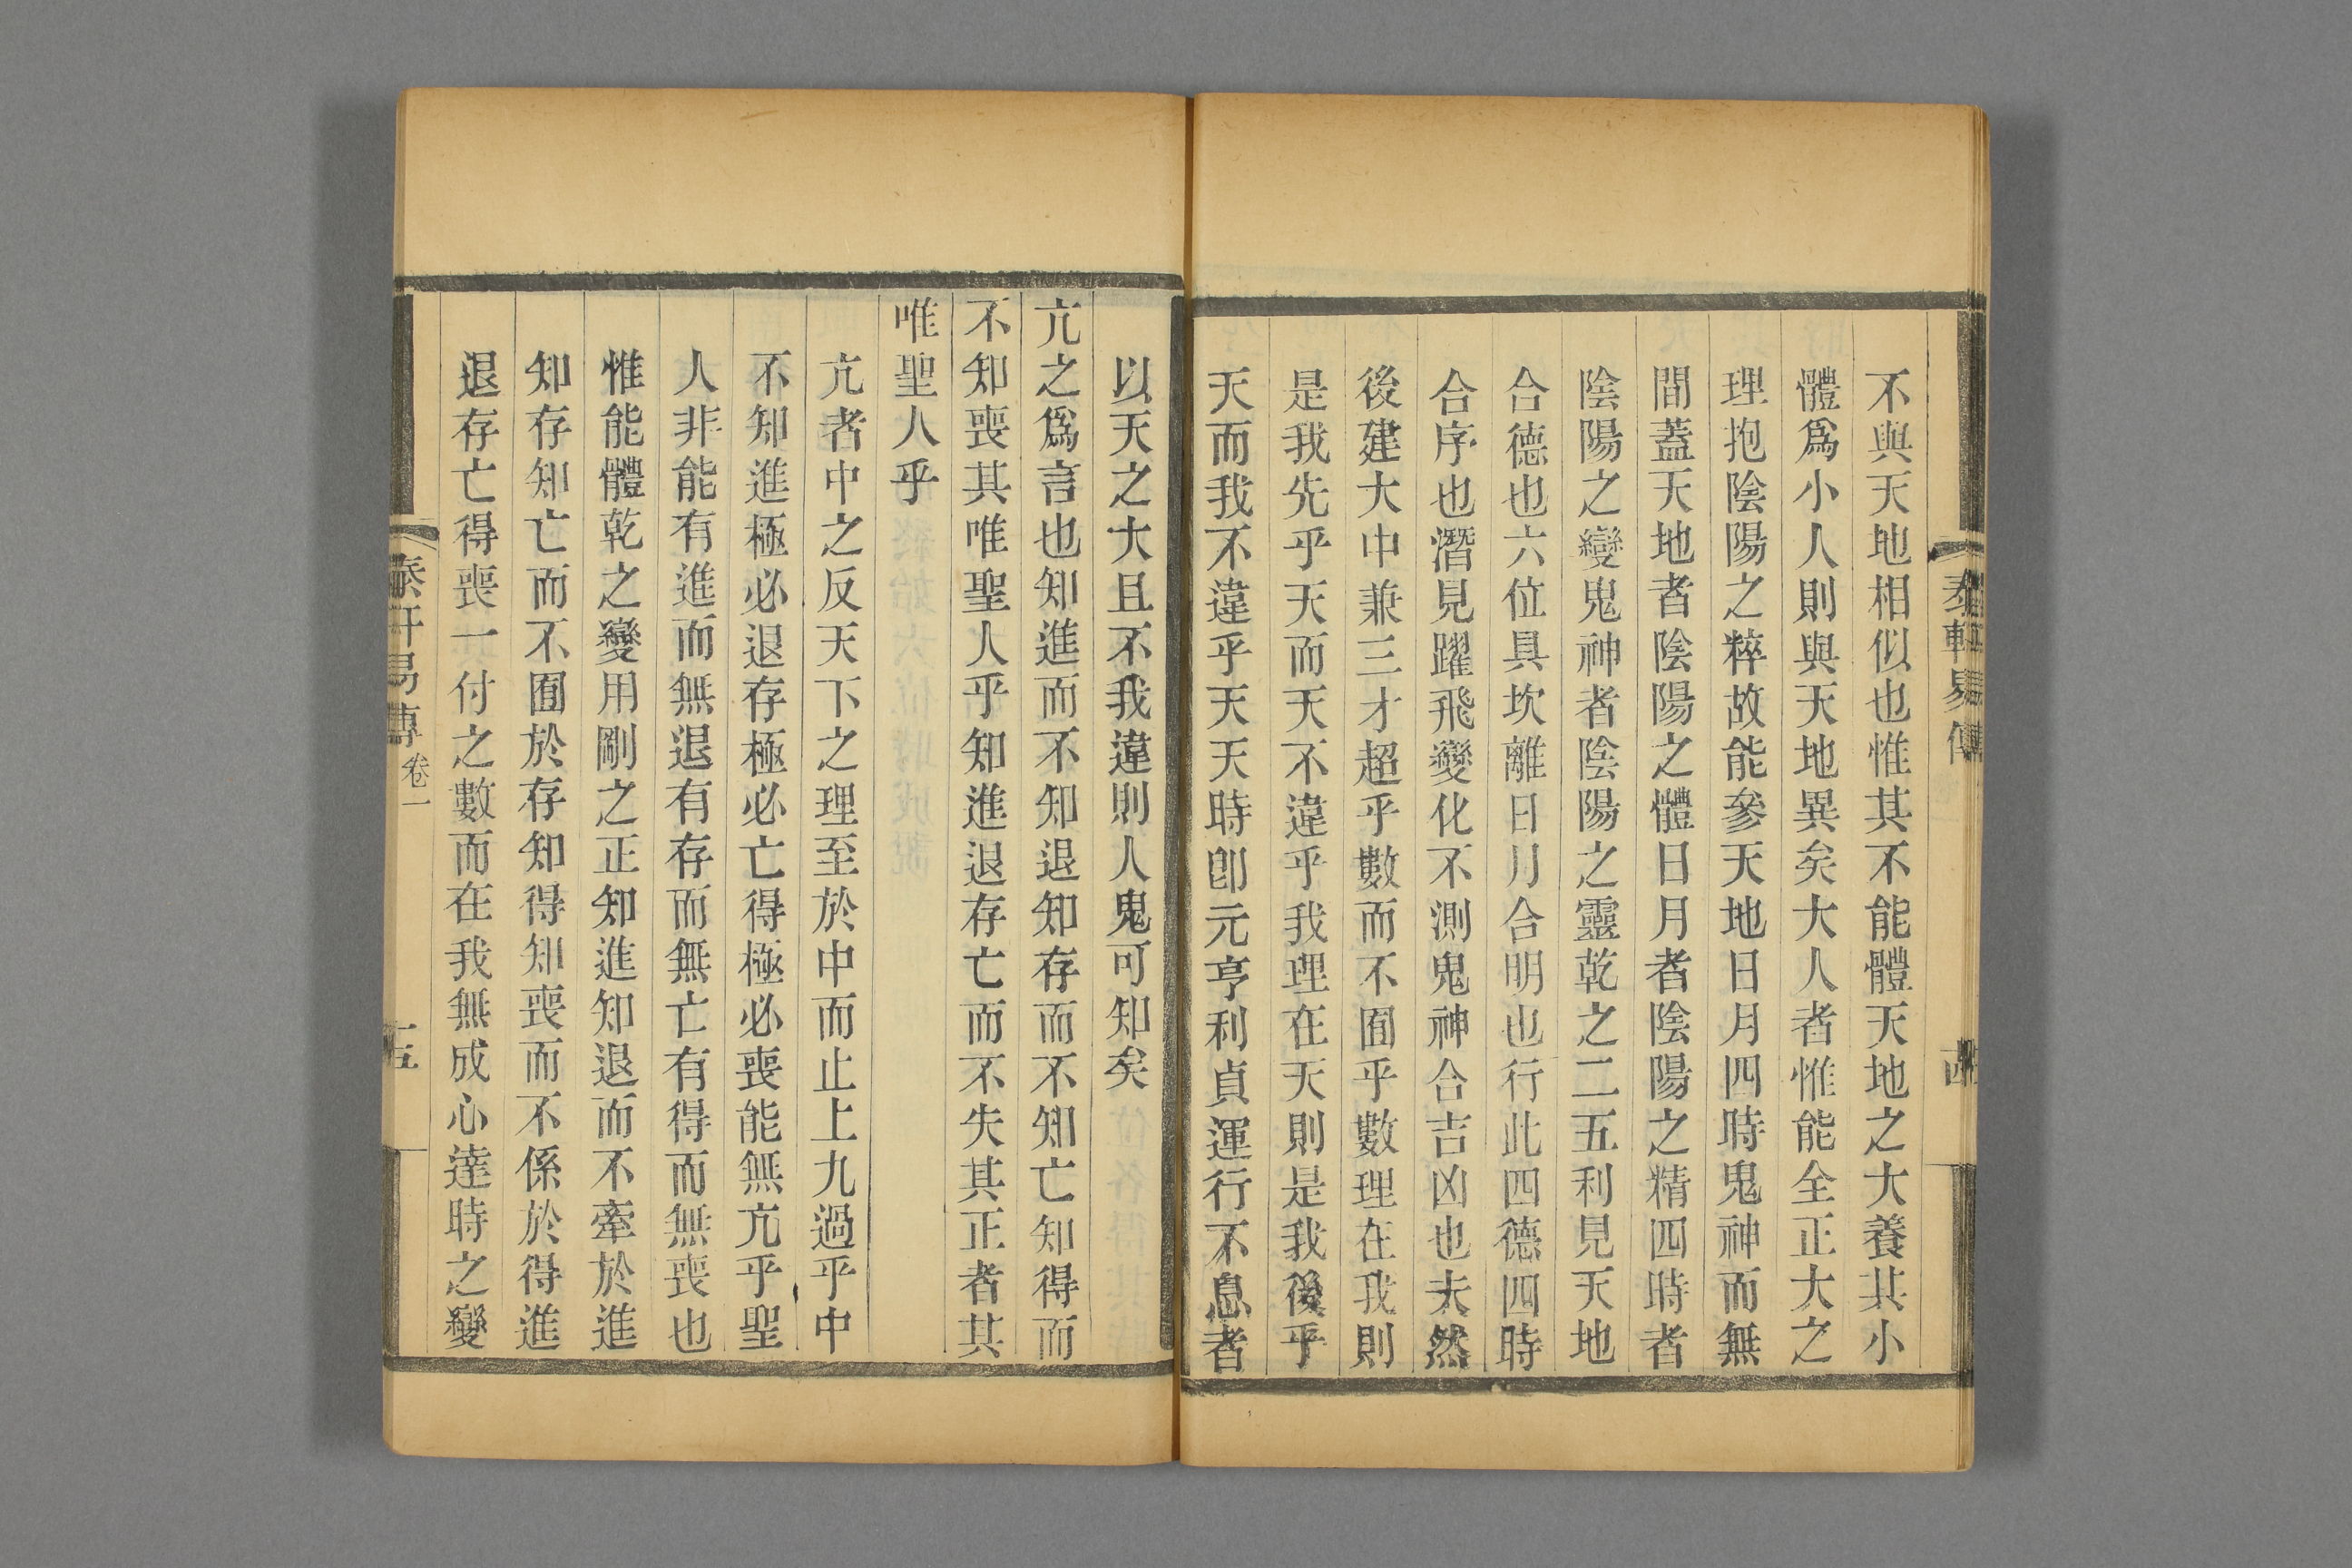 泰軒易傳
不與天地相似也惟其不能體天地之大養其小
體爲小人則與天地異矣大人者惟能全正大之
理抱陰陽之粹故能參天地日月四時鬼神而無
間蓋天地者陰陽之體日月者陰陽之精四時者
陰陽之變鬼神者陰陽之靈乾之二五利見天地
合德也六位具坎離日月合明也行此四德四時
合序也潛見躍飛變化不測鬼神合吉凶也夫然
後建大中兼三才超乎數而不囿乎數理在我則
是我先乎天而天不違乎我理在天則是我後乎
天而我不違乎天天時卽元亨利貞運行不息者
以天之大且不我違則人鬼可知矣
亢之爲言也知進而不知退知存而不知亡知得而
不知喪其唯聖人乎知進退存亡而不失其正者其
唯聖人乎
亢者中之反天下之理至於中而止上九過乎中
不知進極必退存極必亡得極必喪能無亢乎聖
人非能有進而無退有存而無亡有得而無喪也
惟能體乾之變用剛之正知進知退而不牽於進
知存知亡而不囿於存知得知喪而不係於得進
退存亡得喪一付之數而在我無成心達時之變
泰軒易傳 卷一
十五